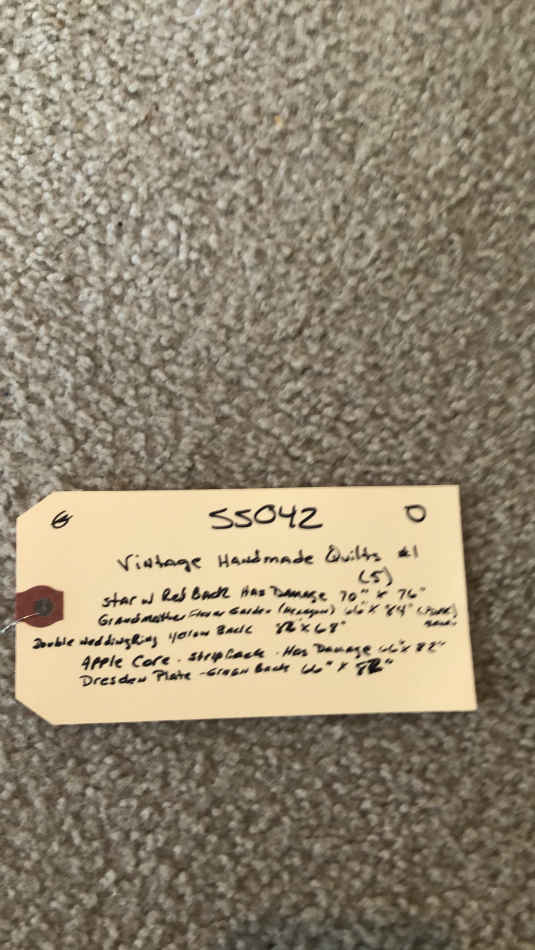 G 55042 O
Vintage Handmade Quilts #1
(5)
Star w Red Back Has Damage 70" x 76"
Grandmother Flower Garden (Hexagon) 66" x 84"
Double Wedding Ring Yellow Back 82" x 68"
Apple Core - Strip Back - Has Damage 66" x 82"
Dresden Plate - Green Back 66" x